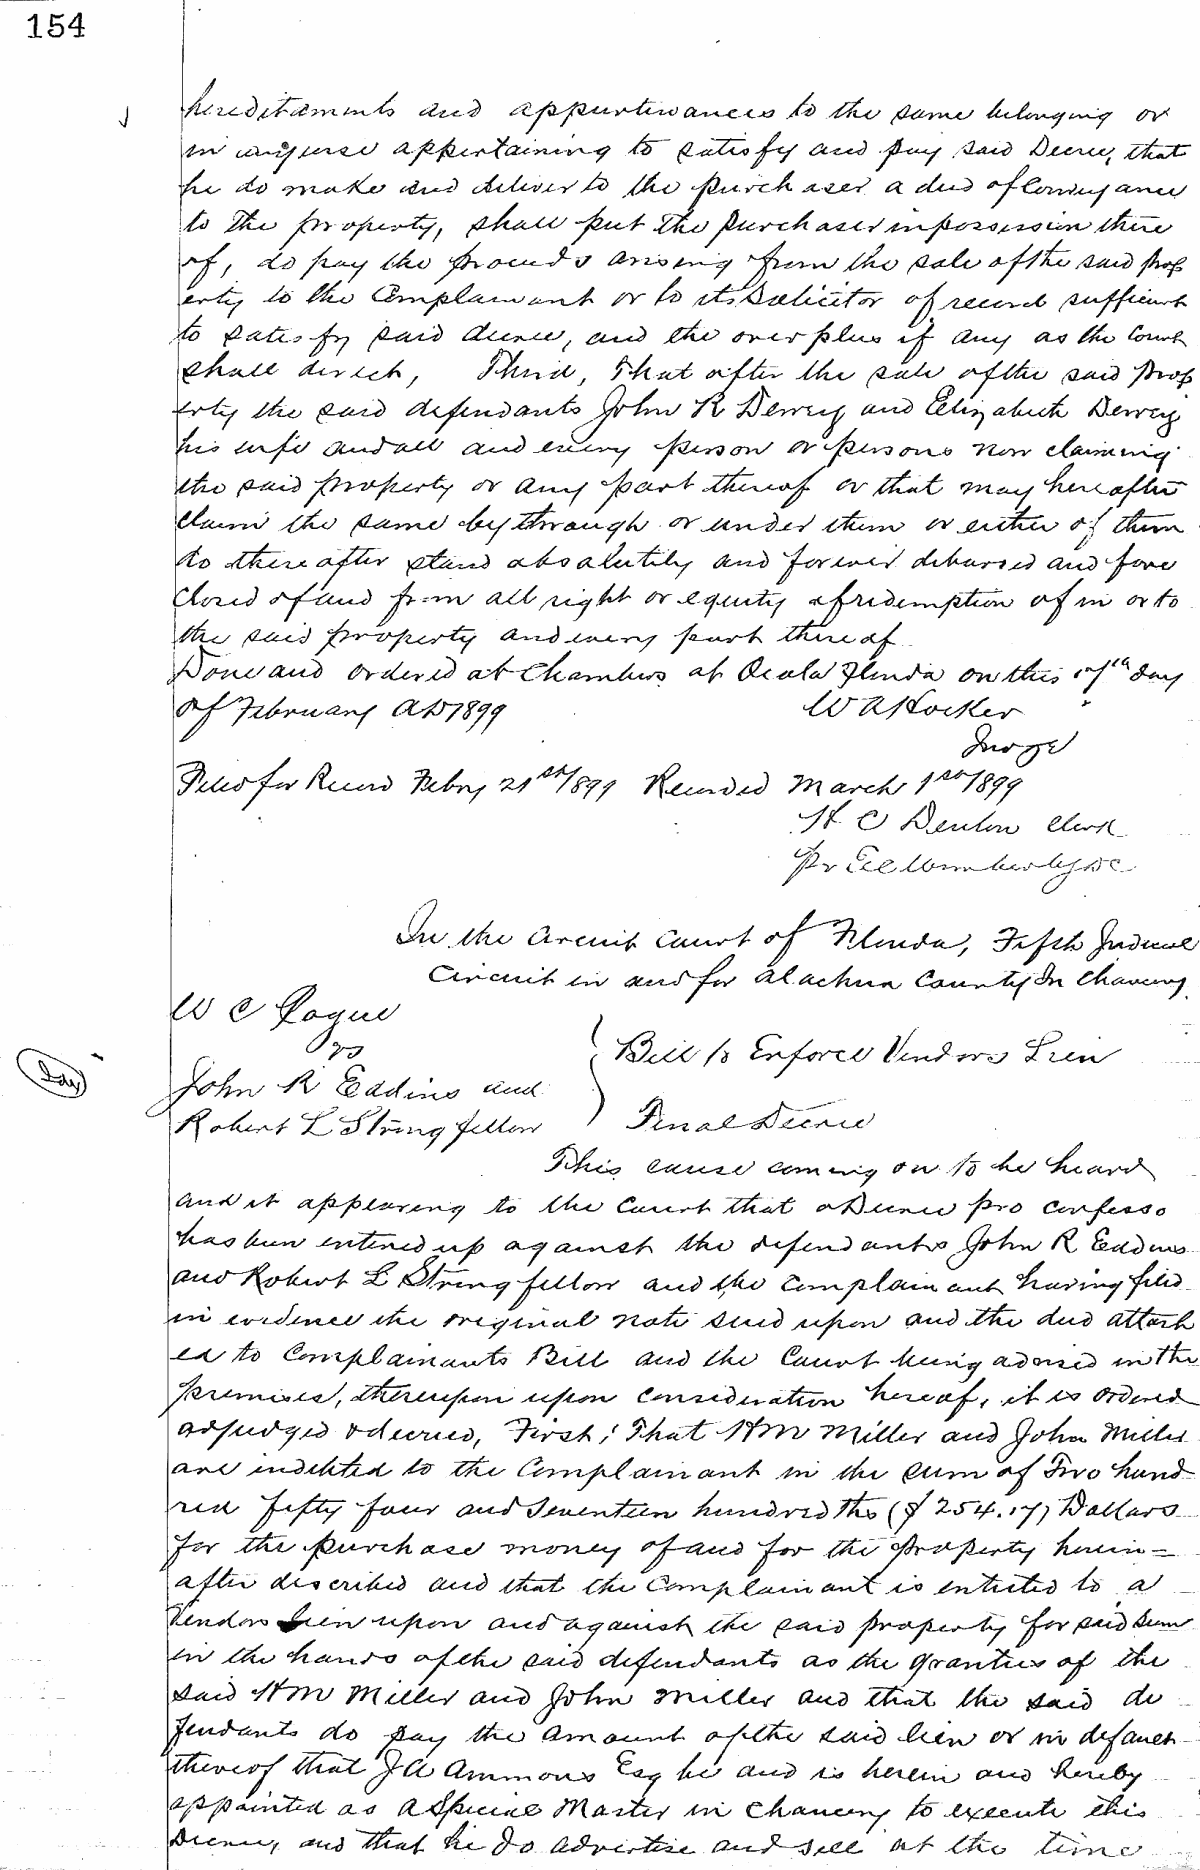 154
hereditaments and appurtenances to the same belonging or
in anywise appertaining to satisfy and pay said Decree, that
he do make and deliver to the purchaser a deed of Conveyance
to the property, shall put the purchaser in possession there
of, do pay the proceeds arising from the sale of the said prop
erty to the Complainant or to its Solicitor of record sufficient
to satisfy said decree, and the over plus if any as the Court
shall direct, Third, That after the sale of the said prop
erty the said defendants John R Dewey and Elizabeth Dewey
his wife and all and every person or persons now claiming
the said property or any part thereof or that may hereafter
claim the same by through or under them or either of them
do thereafter stand absolutely and forever debarred and fore
closed of and from all right or equity of redemption of in or to
the said property and every part thereof
Done and ordered at Chambers at Ocala Florida on this 17th day
of February AD 1899 W A Hocker
Judge
Filed for Record Febry 21st/1899 Recorded March 1st/1899
H C Denton Clerk
Pr DC
In the Circuit Court of Florida, Fifth Judicial
Circuit in and for Alachua County In Chancery
W C Pogue
vs
Bill to Enforce Vendors Lien
John R Eddins and
Robert L Stringfellow Final Decree
This cause coming on to be heard
and it appearing to the Court that a Decree pro confesso
has been entered up against the defendants John R Eddins
and Robert L Stringfellow and the Complainant having filed
in evidence the original note sued upon and the deed attach
ed to Complainants Bill and the Court being advised in the
premises, thereupon upon consideration hereof, it is ordered
adjudged & decreed, First; That Wm Miller and John Miller
are indebted to the Complainant in the sum of Two hund
red fifty four and Seventeen hundredths ($254.17) Dollars
for the purchase money of and for the property herein=
after described and that the Complainant is entitled to a
Vendors Lien upon and against the said property for said sum
in the hands of the said defendants as the grantees of the
said Wm Miller and John Miller and that the said de
fendants do pay the amount of the said lien or in default
thereof that J A Ammons Esq be and is herein and hereby
appointed as a Special Master in Chancery to execute this
Decree, and that he do advertise and sell at the time